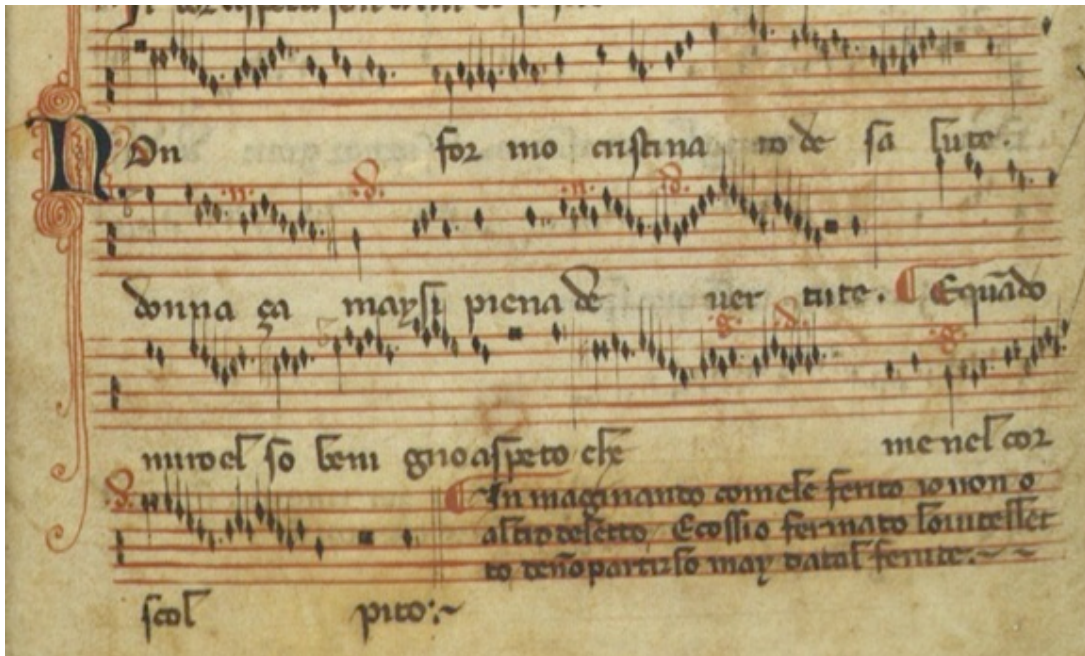 Non for mo cristina to de sa lute.
.n. .d. .n. .d.
donna ça maysi piena de uer tute. Equãdo
.g. .d. .g.
miroel so beni gno aspeto che me nel cor
.d.
In maginando comele fenito io non o
altro deletto. E cossi o fermato lointellet
to de nõ partirlo may datal fenite:~~
scol pito:~